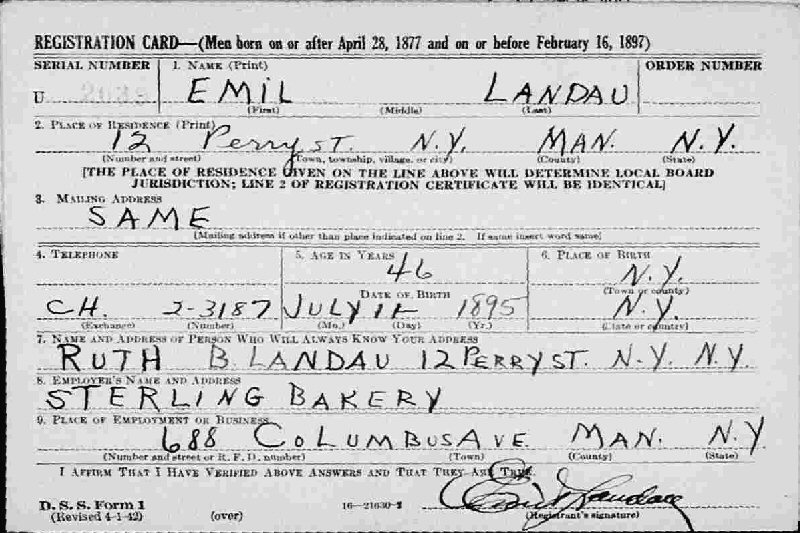 REGISTRATION CARD—(Men born on or after April 28, 1877 and on or before February 16, 1897)
SERIAL NUMBER 1. NAME (Print) ORDER NUMBER
U EMIL LANDAU
(First) (Middle) (Last)
2. PLACE OF RESIDENCE (Print)
12 Perry ST. N.Y. MAN. N.Y.
(Number and street) (Town, township, village, or city) (County) (State)
[THE PLACE OF RESIDENCE GIVEN ON THE LINE ABOVE WILL DETERMINE LOCAL BOARD
JURISDICTION; LINE 2 OF REGISTRATION CERTIFICATE WILL BE IDENTICAL]
3. MAILING ADDRESS
SAME
(Mailing address if other than place indicated on line 2. If same insert word same)
4. TELEPHONE 5. AGE IN YEARS 6. PLACE OF BIRTH
46 N.Y.
DATE OF BIRTH (Town or county)
CH. 2-3187 JULY 1895 N.Y.
(Exchange) (Number) (Mo.) (Day) (Yr.) (State or country)
7. NAME AND ADDRESS OF PERSON WHO WILL ALWAYS KNOW YOUR ADDRESS
RUTH B. LANDAU 12 PERRY ST. N.Y. N.Y.
8. EMPLOYER'S NAME AND ADDRESS
STERLING BAKERY
9. PLACE OF EMPLOYMENT OR BUSINESS
688 COLUMBUS AVE MAN. N.Y
(Number and street or R. F. D. number) (Town) (County) (State)
I AFFIRM THAT I HAVE VERIFIED ABOVE ANSWERS AND THAT THEY ARE TRUE.
Emil Landau
D. S. S. Form 1
(Revised 4-1-42) (over) 16—21630-2 (Registrant's signature)